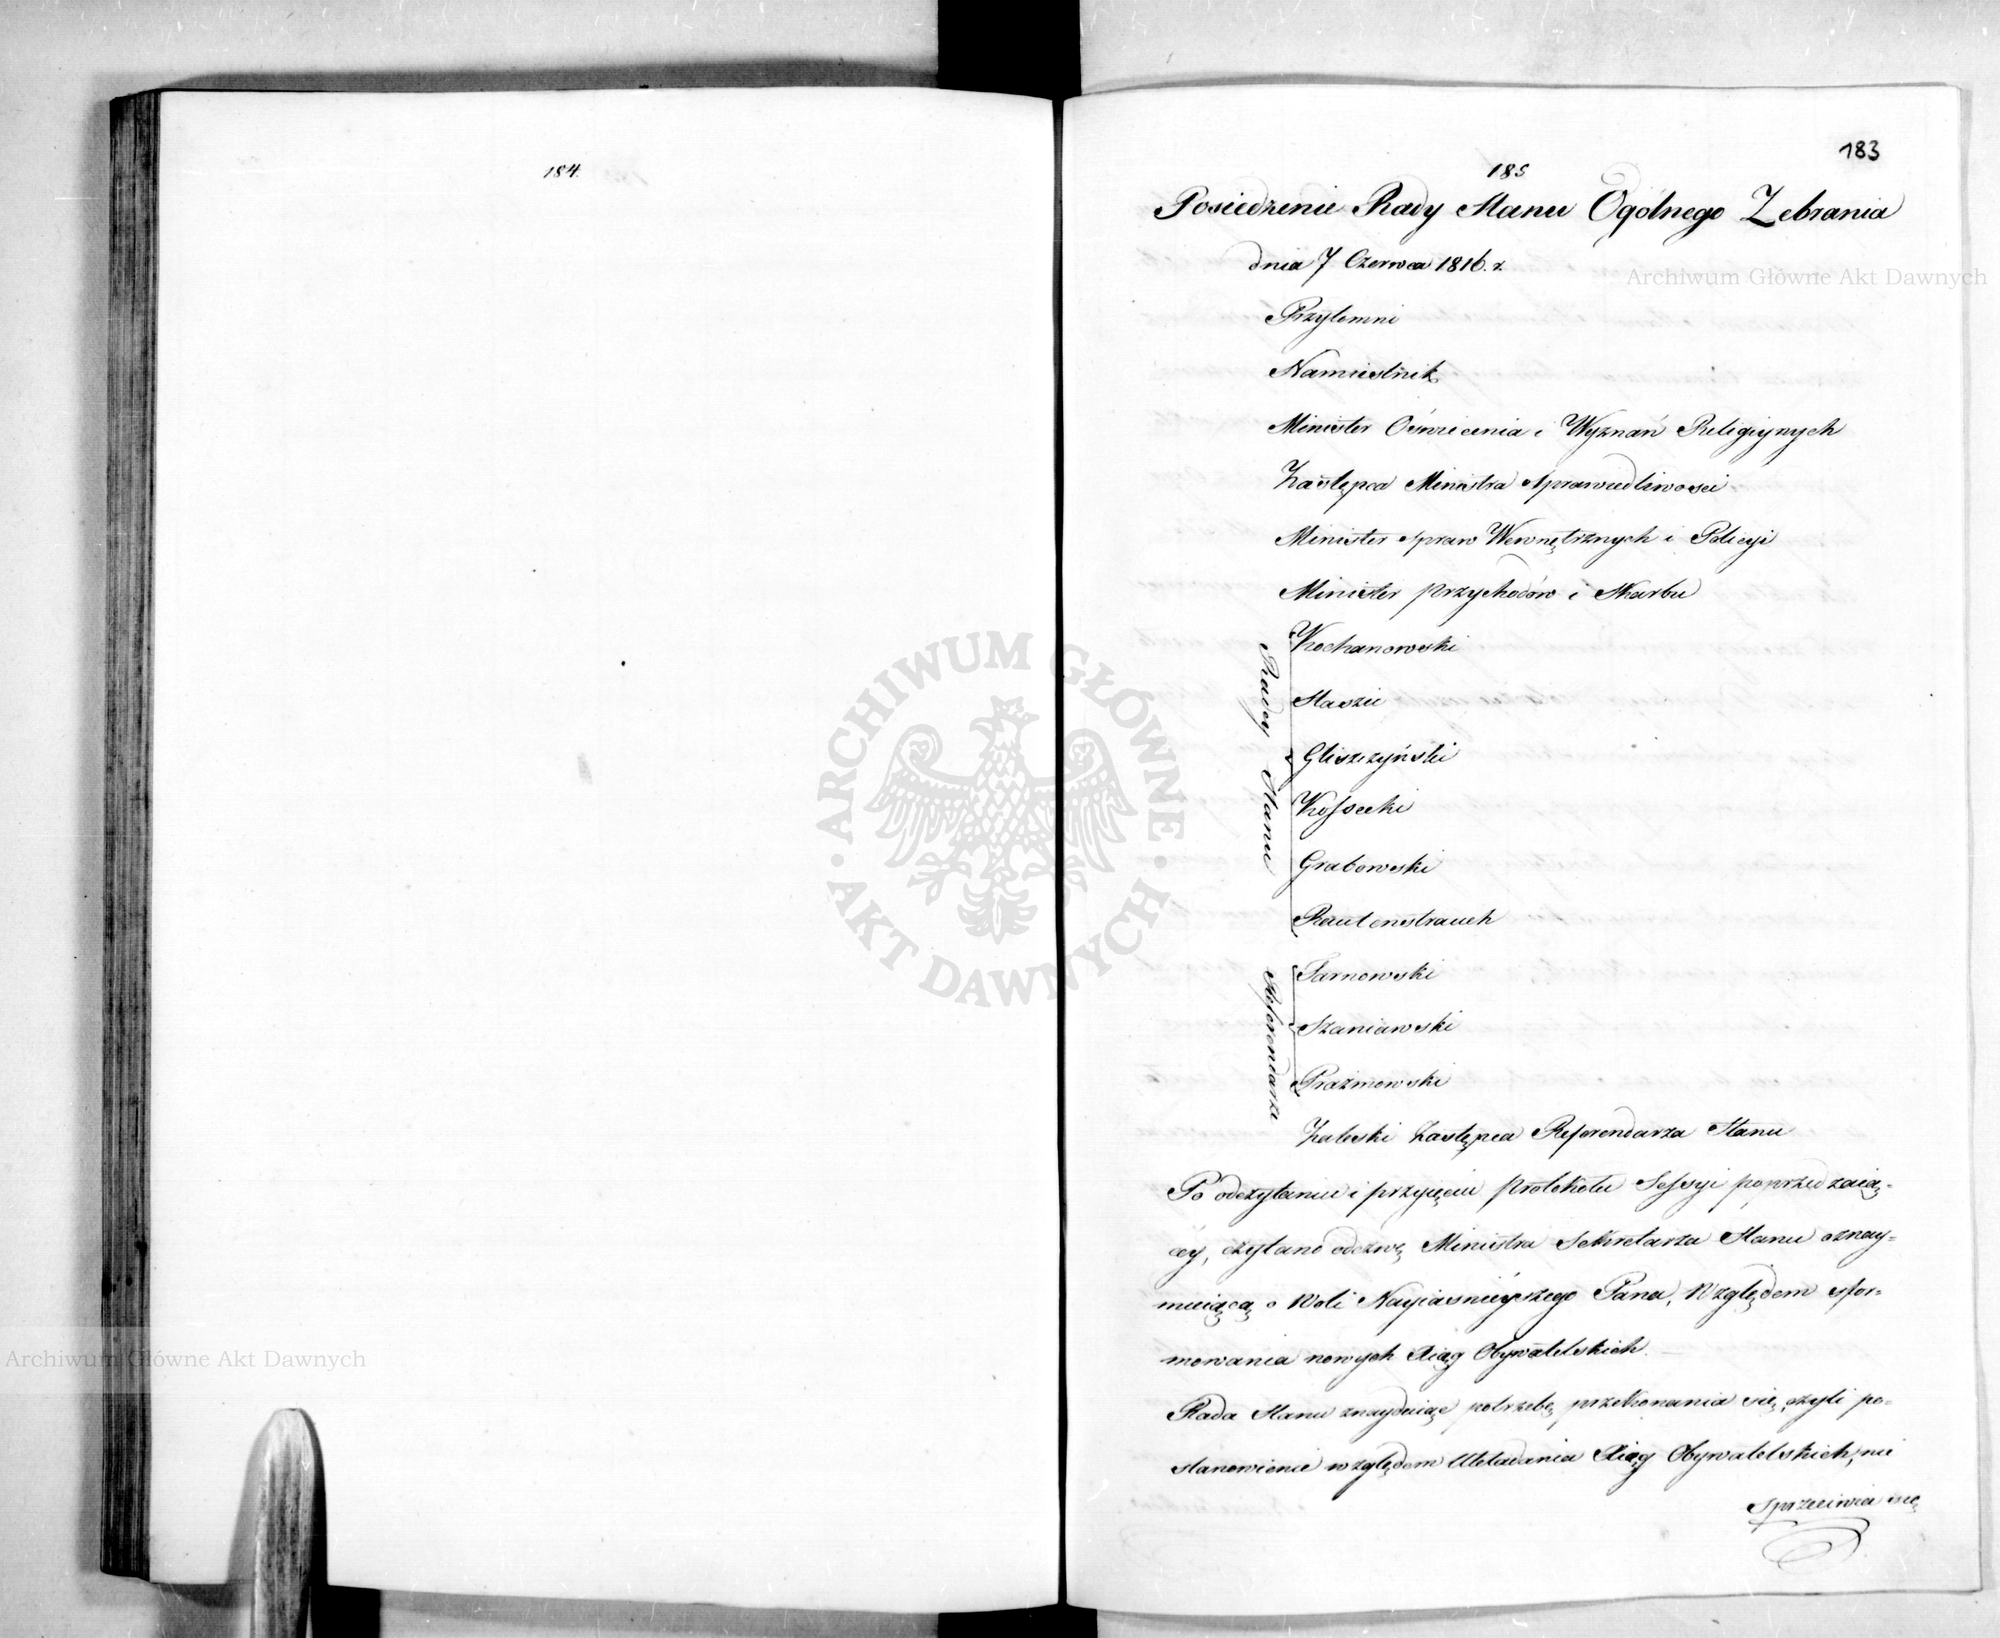 184.
183
185
Posiedzenie Rady Stanu Ogólnego Zebrania
dnia 7 Czerwca 1816. r.
Archiwum Główne Akt Dawnych
Przytomni
Namiestnik
Minister Oświecenia i Wyznań Religiynych
Zastępca Ministra Sprawiedliwosci
Minister Spraw Wewnętrznych i Policyi
Minister przychodów i Skarbu
Radcy Stanu
Kochanowski
Staszic
Gliszczyński
Kossecki
Grabowski
Rautenstrauch
Referendarze
Tarnowski
Szaniawski
Prażmowski
Zaleski Zastępca Referendarza Stanu
Po odczytaniu i przyięciu protokołu Sessyi poprzedzaią-
cey, czytano odezwę Ministra Sekretarza Stanu oznay-
muiącą o Woli Nayiaśnieyszego Pana, Względem sfor-
mowania nowych Xiąg Obywatelskich.
Rada Stanu znayduiąc potrzebę przekonania się, czyli po-
stanowienie względem Układania Xiąg Obywatelskich, nie
sprzeciwia się
ARCHIWUM GŁÓWNE
AKT DAWNYCH
Archiwum Główne Akt Dawnych